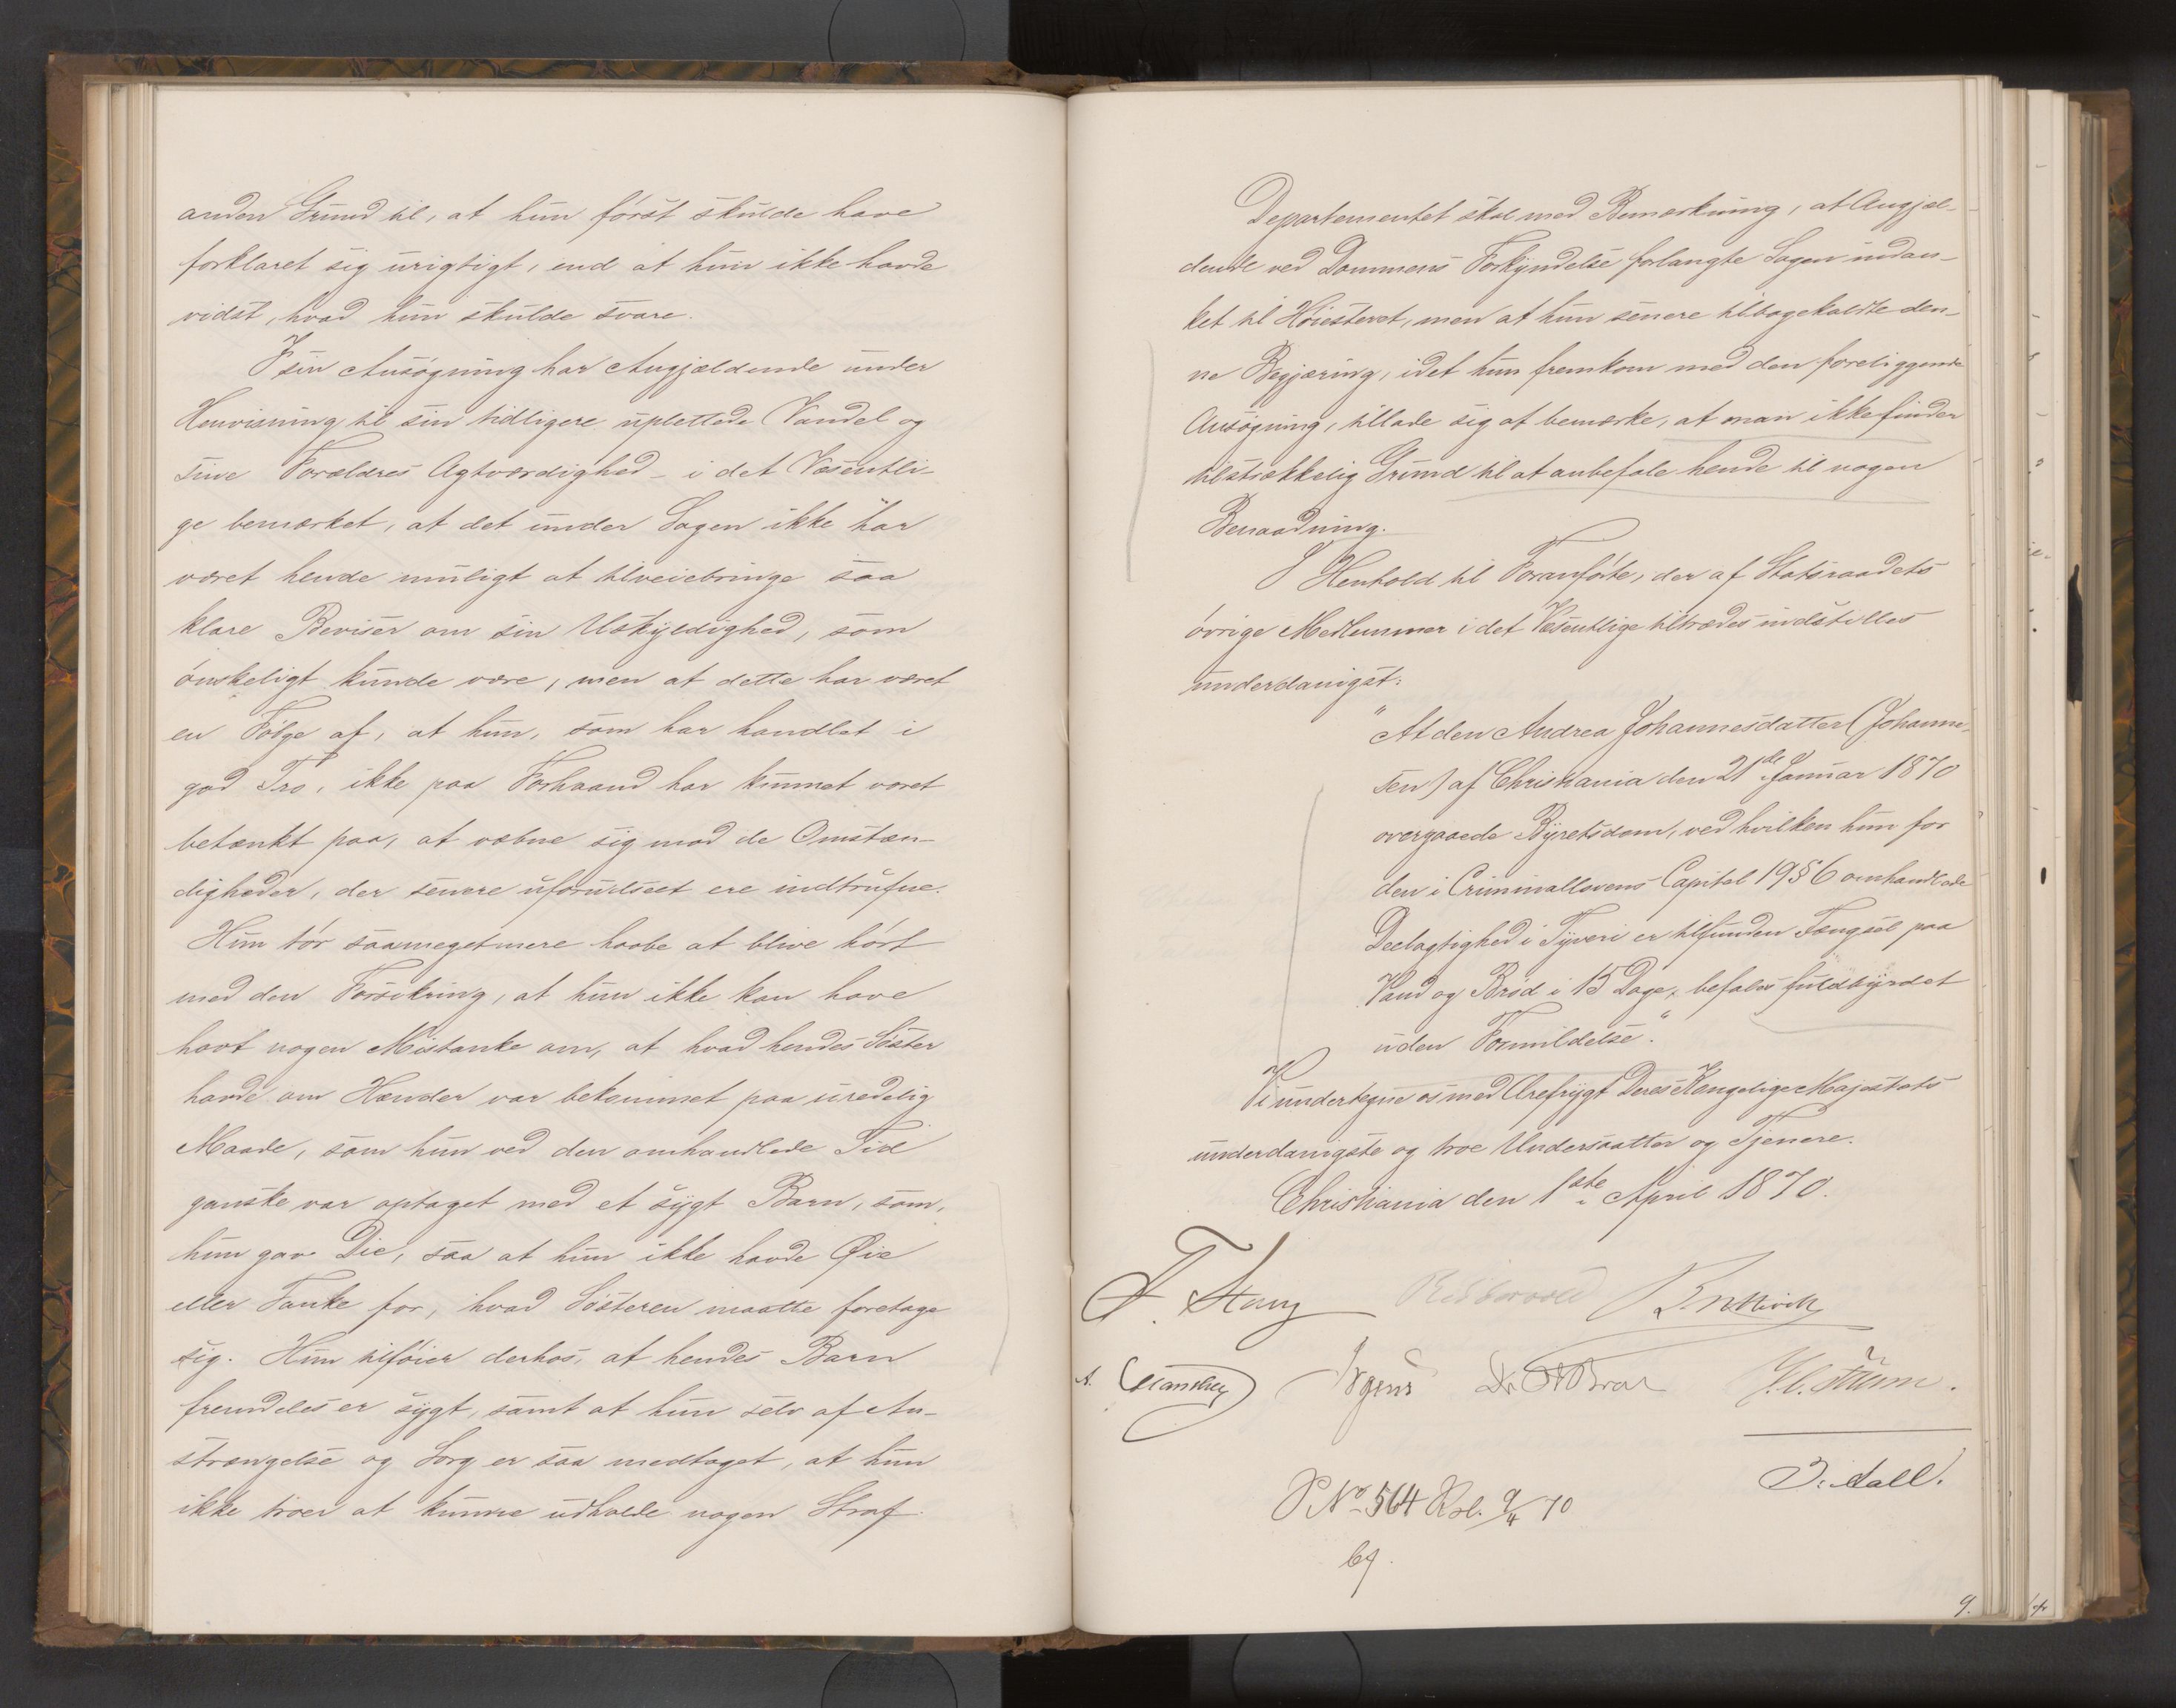 anden Grund til, at hun först skulde have
forklaret sig urigtigt, end at hun ikke havde
vidst, hvad hun skulde svare.
I sin Ansögning har Angjældende under
Henvisning til sin tidligere uplettede Vandel og
sine Forældres Agtværdighed – i det Væsentli-
ge bemærket, at det under Sagen ikke har
været hende muligt at tilveiebringe saa
klare Beviser om sin Uskyldighed, som
önskeligt kunde være, men at dette har været
en Fölge af, at hun, som har handlet i
god Tro, ikke paa Forhaand har kunnet været
betænkt paa, at væbne sig mod de Omstæn-
digheder, der senere uforudseet ere indtrufne.
Hun tör saameget mere haabe at blive hört
med den Forsikring, at hun ikke kan have
havt nogen Mistanke om, at hvad hendes Söster
havde om Hænder var bekommet paa uredelig
Maade, som hun ved den omhandlede Tid
ganske var optaget med et sygt Barn, som,
hun gav Die, saa at hun ikke havde Øie
eller Tanke for, hvad Sösteren maatte foretage
sig. Hun tilföier derhos, at hendes Barn
fremdeles er sygt, samt at hun selv af An-
strængelse og Sorg er saa medtaget, at hun
ikke troer at kunne udholde nogen Straf.
Departementet skal med Bemærkning, at Angjæl-
dende ved Dommens Forkyndelse forlangte Sagen indan-
ket til Höiesteret, men at hun senere tilbagekaldte den-
ne Begjæring, idet hun fremkom med den foreliggende
Ansögning, tillade sig at bemærke, at man ikke finder
tilstrækkelig Grund til at anbefale hende til nogen
Benaadning.
I Henhold til Foranförte, der af Statsraadets
övrige Medlemmer i det Væsentlige tiltrædes indstilles
underdanigst:
"At den Andrea Johannesdatter (Johanne-
sen) af Christiania den 21de Januar 1870
overgaaede Byretsdom, ved hvilken hun for
den i Criminallovens Capitel 19 § 6 omhandlede
Deelagtighed i Tyveri er tilfunden Fængsel paa
Vand og Bröd i 15 Dage, befales fuldbyrdet
uden Formildelse."
Vi undertegne os med Ærefrygt Deres Kongelige Majestæts
underdanigste og troe Undersaatter og Tjenere.
Christiania den 1ste April 1870.
F. Stang Riddervold Bretteville
A. Manthey Irgens Dr O J Broch J. C. Falsen.
J. Aall.
P No 564 Rsl. 9/4 70
bf.
9.